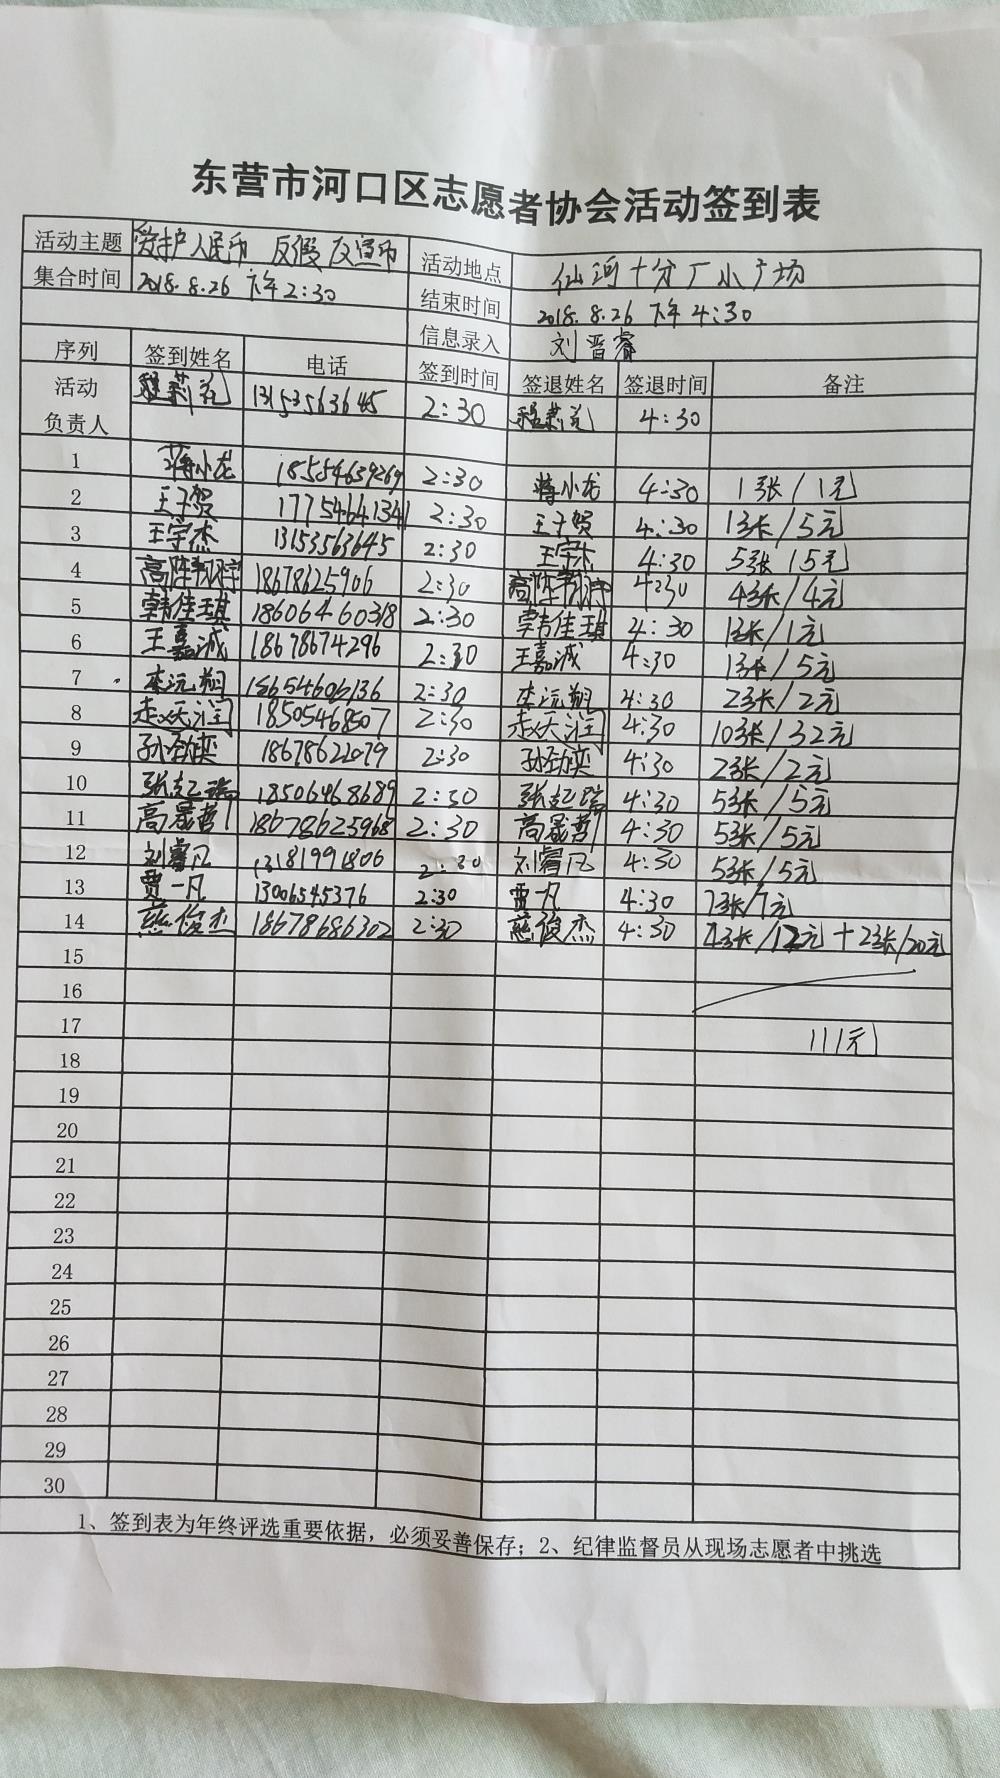 东营市河口区志愿者协会活动签到表
活动主题 爱护人民币 反假 反宣币 活动地点 仙河十分厂小广场
集合时间 2018.8.26 下午2:30 结束时间 2018.8.26 下午4:30
信息录入 刘晋睿
序列 签到姓名 电话 签到时间 签退姓名 签退时间 备注
活动负责人 13153563645 2:30 4:30
1 蒋小龙 18554639269 2:30 蒋小龙 4:30 1张/1元
2 王子贺 17754641341 2:30 王子贺 4:30 1张/5元
3 王宇杰 13153563645 2:30 王宇杰 4:30 5张/5元
4 18678625906 2:30 4:30 4张/4元
5 韩佳琪 18606460318 2:30 韩佳琪 4:30 1张/1元
6 王嘉诚 18678674296 2:30 王嘉诚 4:30 1张/5元
7 李沅翔 18654606136 2:30 李沅翔 4:30 2张/2元
8 赵天润 18505468507 2:30 赵天润 4:30 10张/32元
9 孙劲奕 18678622079 2:30 孙劲奕 4:30 2张/2元
10 张起瑞 18506468689 2:30 张起瑞 4:30 5张/5元
11 高晟哲 18678625968 2:30 高晟哲 4:30 5张/5元
12 刘睿凡 13181991806 2:30 刘睿凡 4:30 5张/5元
13 贾一凡 13006545376 2:30 贾一凡 4:30 7张/7元
14 慈俊杰 18678686302 2:30 慈俊杰 4:30 4张/12元+2张/20元
15
16
17 111元
18
19
20
21
22
23
24
25
26
27
28
29
30
1、签到表为年终评选重要依据，必须妥善保存；2、纪律监督员从现场志愿者中挑选